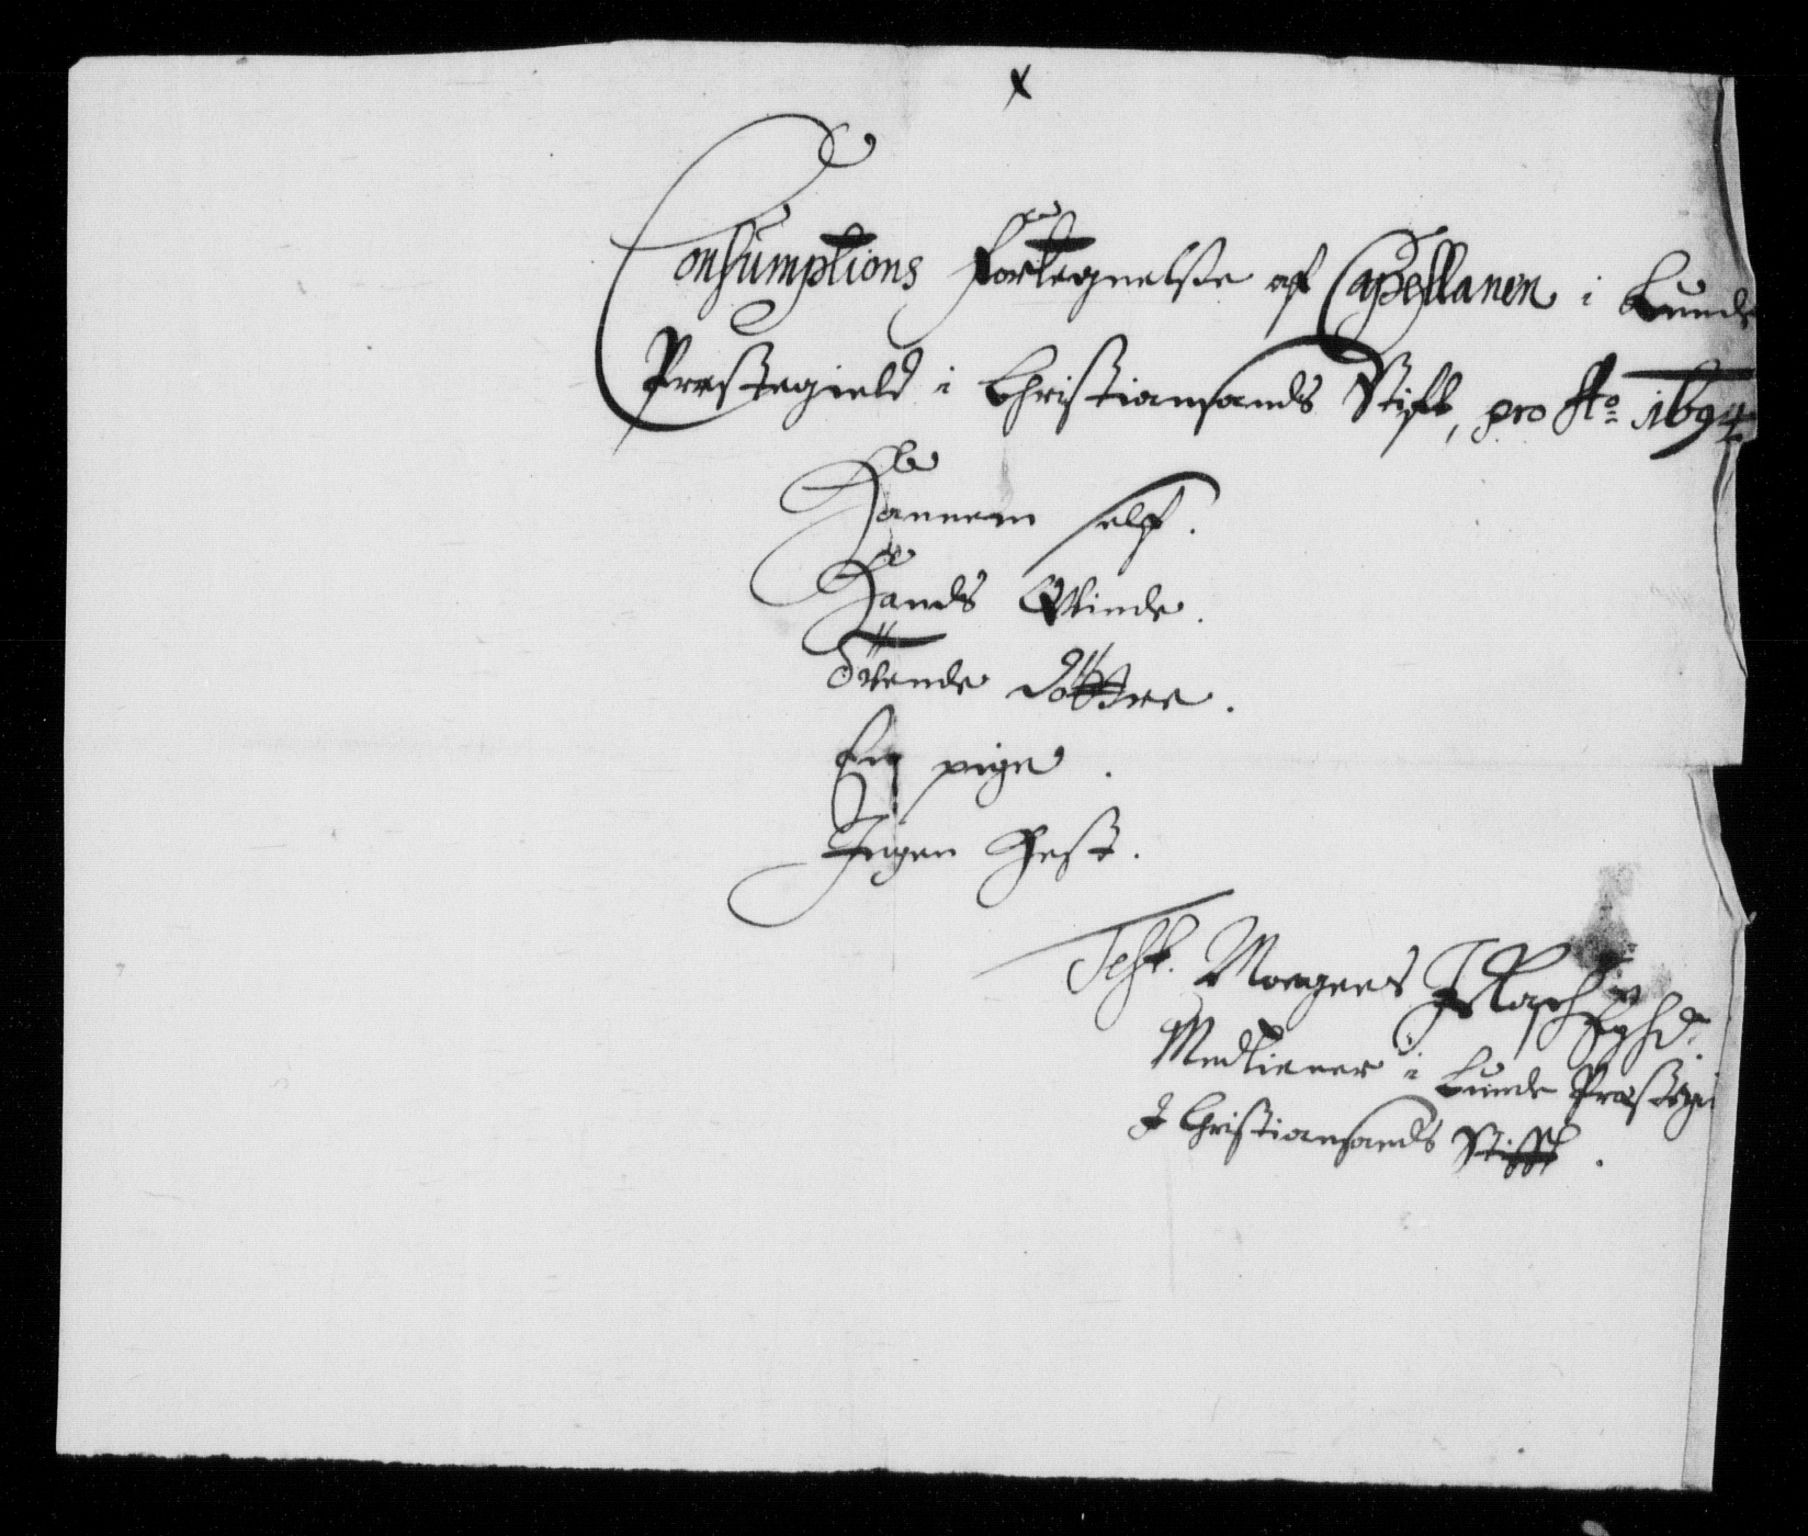 x
Consumptions Fortegnelse af Capellanen i Lunde
Præstegield i Christiansands Stift, pro Ao 1694
Hannem self.
Hands Qvinde.
Tvende Døttre.
En pige.
Ingen Hest.
Test. Mogens
Medtiener i Lunde Præstegi
I Christiansands Stifft.